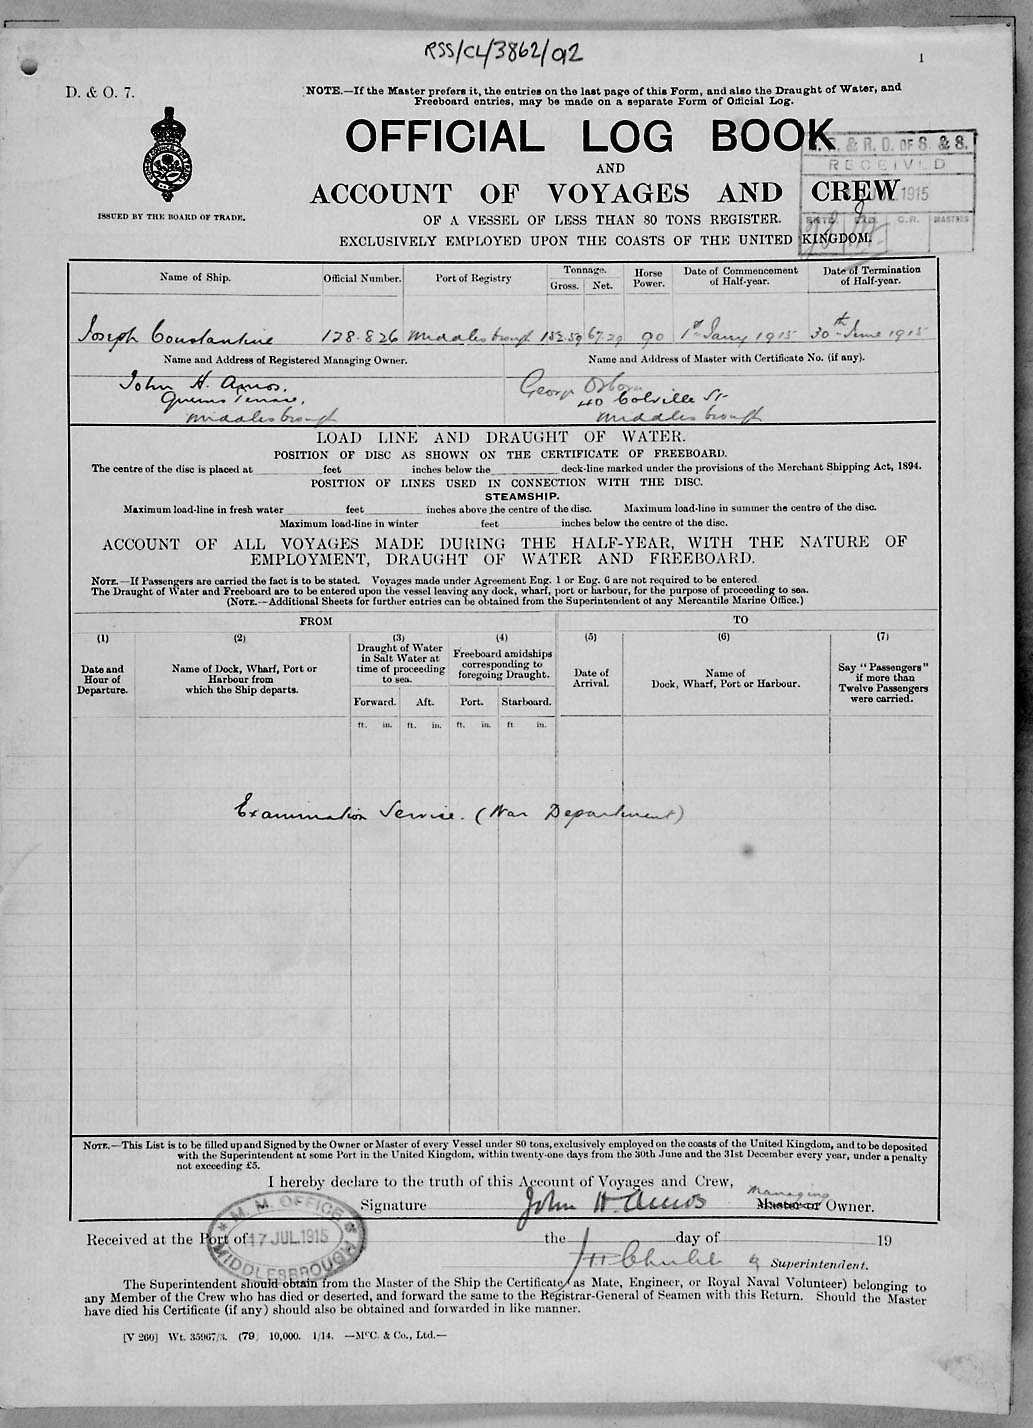 RSS/CL/3862/92
1
D. & O. 7.
NOTE.—If the Master prefers it, the entries on the last page of this Form, and also the Draught of Water, and
Freeboard entries, may be made on a separate Form of Official Log.
OFFICIAL LOG BOOK
AND
ACCOUNT OF VOYAGES AND CREW
OF A VESSEL OF LESS THAN 80 TONS REGISTER.
EXCLUSIVELY EMPLOYED UPON THE COASTS OF THE UNITED KINGDOM.
ISSUED BY THE BOARD OF TRADE.
& R. O. OF S. & S.
RECEIVED
1915
C.R. MASTERS
Name of Ship. Official Number. Port of Registry Tonnage. Gross. Net. Horse Power. Date of Commencement of Half-year. Date of Termination of Half-year.
Joseph Constantine 128.826 Middlesbrough 152.59 67.29 90 1st Jany 1915 30th June 1915
Name and Address of Registered Managing Owner. Name and Address of Master with Certificate No. (if any).
John H. Amos. George Osborn
Queens Terrace, 40 Colville St
Middlesbrough Middlesbrough
LOAD LINE AND DRAUGHT OF WATER.
POSITION OF DISC AS SHOWN ON THE CERTIFICATE OF FREEBOARD.
The centre of the disc is placed at feet inches below the deck-line marked under the provisions of the Merchant Shipping Act, 1894.
POSITION OF LINES USED IN CONNECTION WITH THE DISC.
STEAMSHIP.
Maximum load-line in fresh water feet inches above the centre of the disc. Maximum load-line in summer the centre of the disc.
Maximum load-line in winter feet inches below the centre of the disc.
ACCOUNT OF ALL VOYAGES MADE DURING THE HALF-YEAR, WITH THE NATURE OF
EMPLOYMENT, DRAUGHT OF WATER AND FREEBOARD.
NOTE.—If Passengers are carried the fact is to be stated. Voyages made under Agreement Eng. 1 or Eng. 6 are not required to be entered
The Draught of Water and Freeboard are to be entered upon the vessel leaving any dock, wharf, port or harbour, for the purpose of proceeding to sea.
(NOTE.—Additional Sheets for further entries can be obtained from the Superintendent of any Mercantile Marine Office.)
FROM TO
(1) (2) (3) (4) (5) (6) (7)
Date and Hour of Departure.
Name of Dock, Wharf, Port or Harbour from which the Ship departs.
Draught of Water in Salt Water at time of proceeding to sea.
Freeboard amidships corresponding to foregoing Draught.
Date of Arrival.
Name of Dock, Wharf, Port or Harbour.
Say "Passengers" if more than Twelve Passengers were carried.
Forward. Aft. Port. Starboard.
ft. in. ft. in. ft. in. ft in.
Examination Service. (War Department)
NOTE.—This List is to be filled up and Signed by the Owner or Master of every Vessel under 80 tons, exclusively employed on the coasts of the United Kingdom, and to be deposited
with the Superintendent at some Port in the United Kingdom, within twenty-one days from the 30th June and the 31st December every year, under a penalty
not exceeding £5.
I hereby declare to the truth of this Account of Voyages and Crew,
Signature John H. Amos Managing Master or Owner.
M. M. OFFICE
17 JUL.1915
MIDDLESBROUGH
Received at the Port of the day of 19
Superintendent.
The Superintendent should obtain from the Master of the Ship the Certificate (as Mate, Engineer, or Royal Naval Volunteer) belonging to
any Member of the Crew who has died or deserted, and forward the same to the Registrar-General of Seamen with this Return. Should the Master
have died his Certificate (if any) should also be obtained and forwarded in like manner.
[V 260] Wt. 35967/3. (79) 10,000. 1/14. —McC. & Co., Ltd.—